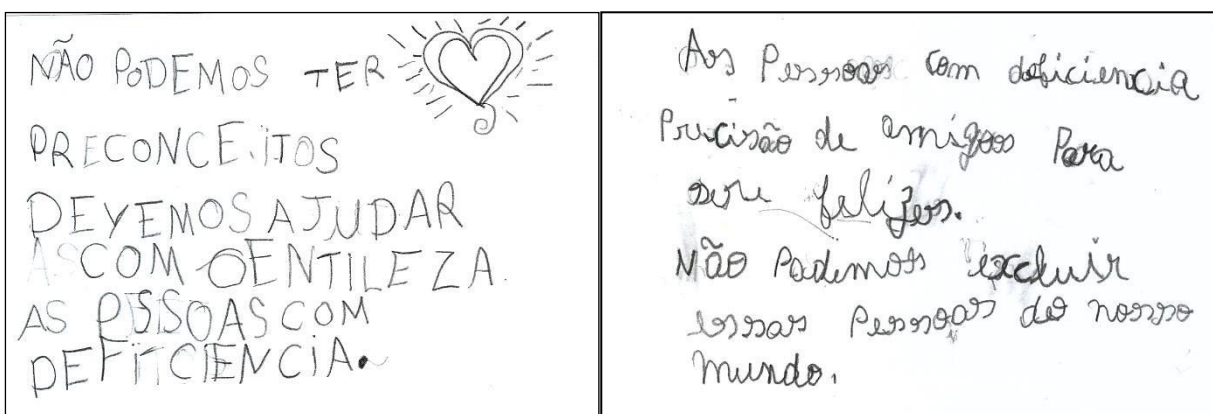 NÃO PODEMOS TER
PRECONCEITOS
DEVEMOS AJUDAR
AS COM GENTILEZA.
AS PESSOAS COM
DEFICIENCIA.
As Pessoas com deficiencia
Precisão de amigos Para
sere felizes.
Não Podemos excluir
essas Pessoas do nosso
mundo.